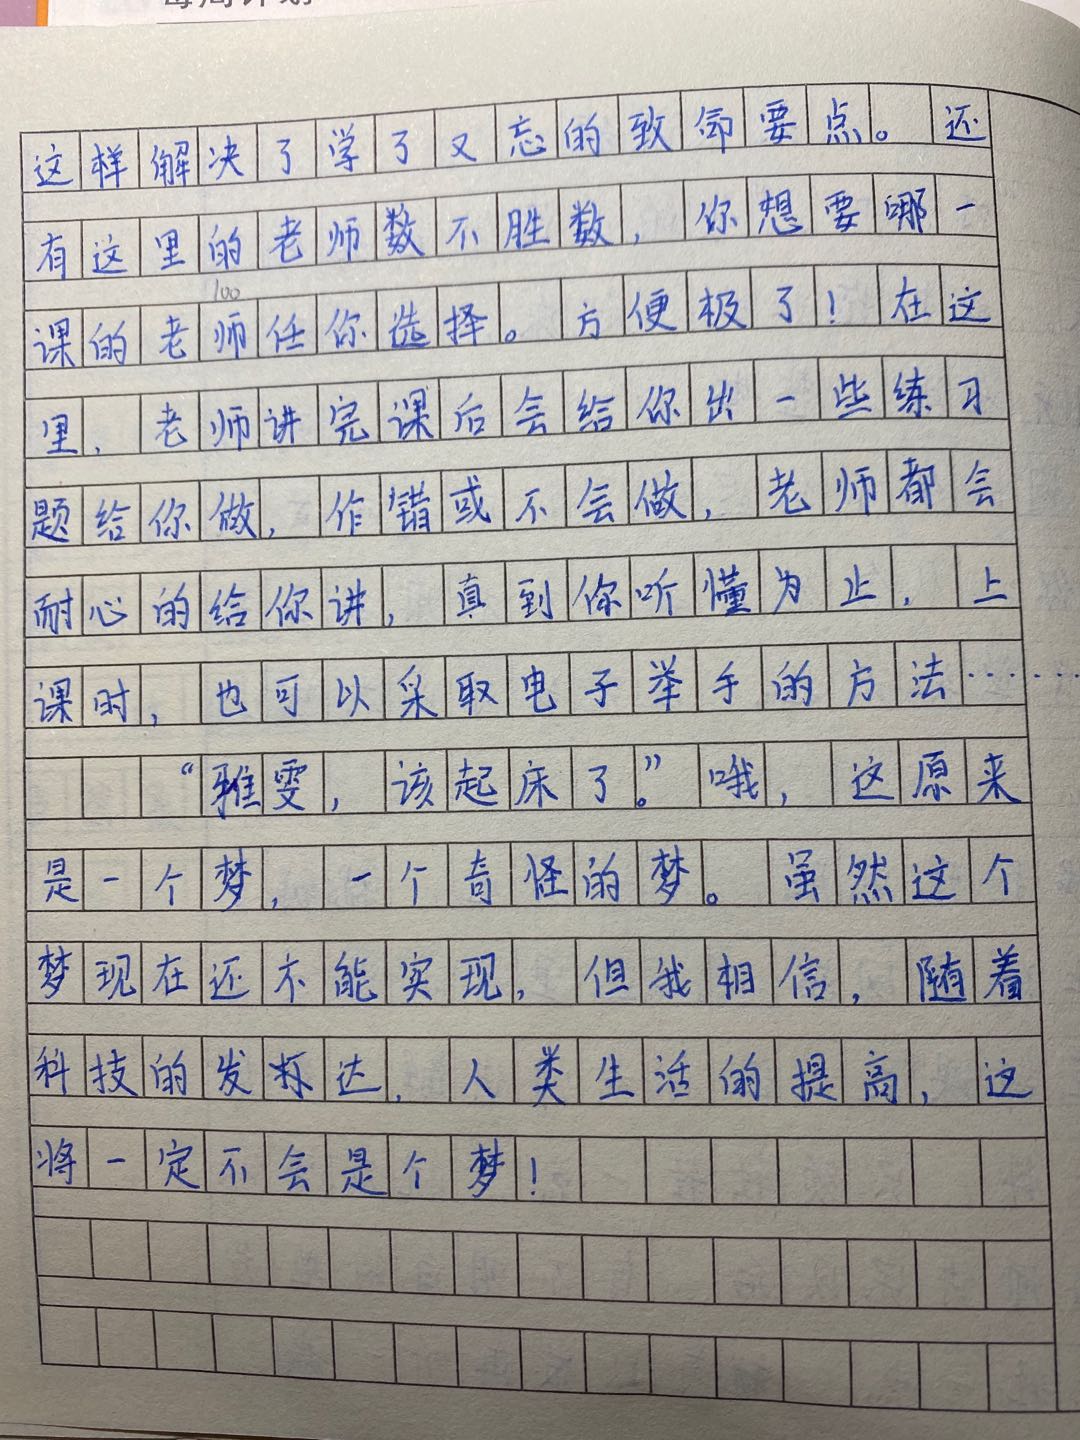 这样解决了学了又忘的致命要点。还
有这里的老师数不胜数，你想要哪一
100
课的老师任你选择。方便极了！在这
里，老师讲完课后会给你出一些练习
题给你做，作错或不会做，老师都会
耐心的给你讲，真到你听懂为止，上
课时，也可以采取电子举手的方法……
“雅雯，该起床了。”哦，这原来
是一个梦，一个奇怪的梦。虽然这个
梦现在还不能实现，但我相信，随着
科技的发达，人类生活的提高，这
将一定不会是个梦！